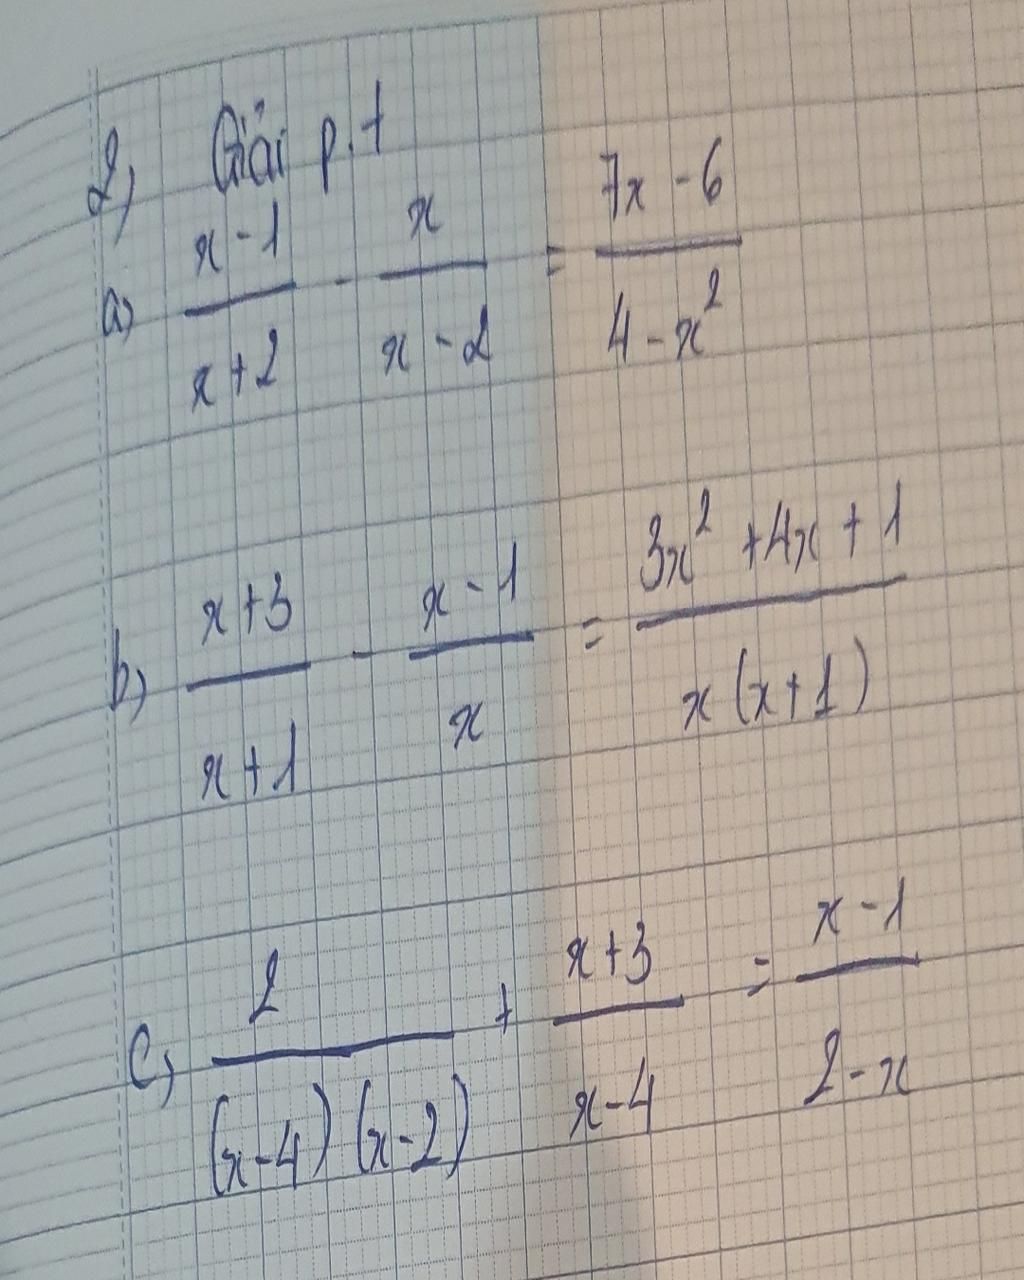 2, Giải p.t
a) \frac{x-1}{x+2} - \frac{x}{x-2} = \frac{7x-6}{4-x^2}
b) \frac{x+3}{x+1} - \frac{x-1}{x} = \frac{3x^2+4x+1}{x(x+1)}
c) \frac{2}{(x-4)(x-2)} + \frac{x+3}{x-4} = \frac{x-1}{2-x}